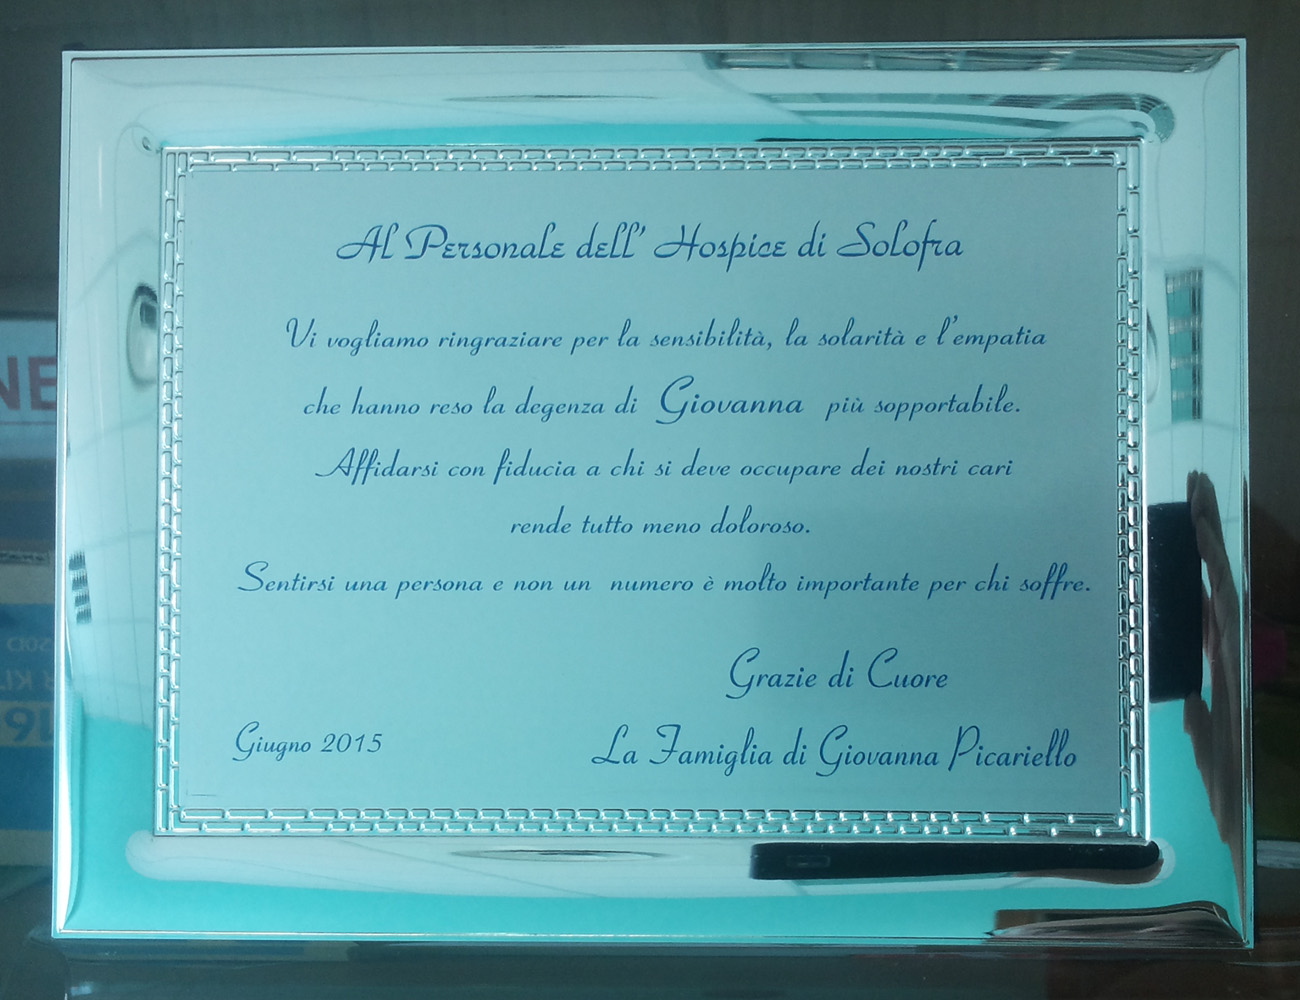 Al Personale dell' Hospice di Solofra
Vi vogliamo ringraziare per la sensibilità, la solarità e l'empatia
che hanno reso la degenza di Giovanna più sopportabile.
Affidarsi con fiducia a chi si deve occupare dei nostri cari
rende tutto meno doloroso.
Sentirsi una persona e non un numero è molto importante per chi soffre.
Grazie di Cuore
Giugno 2015 La Famiglia di Giovanna Picariello